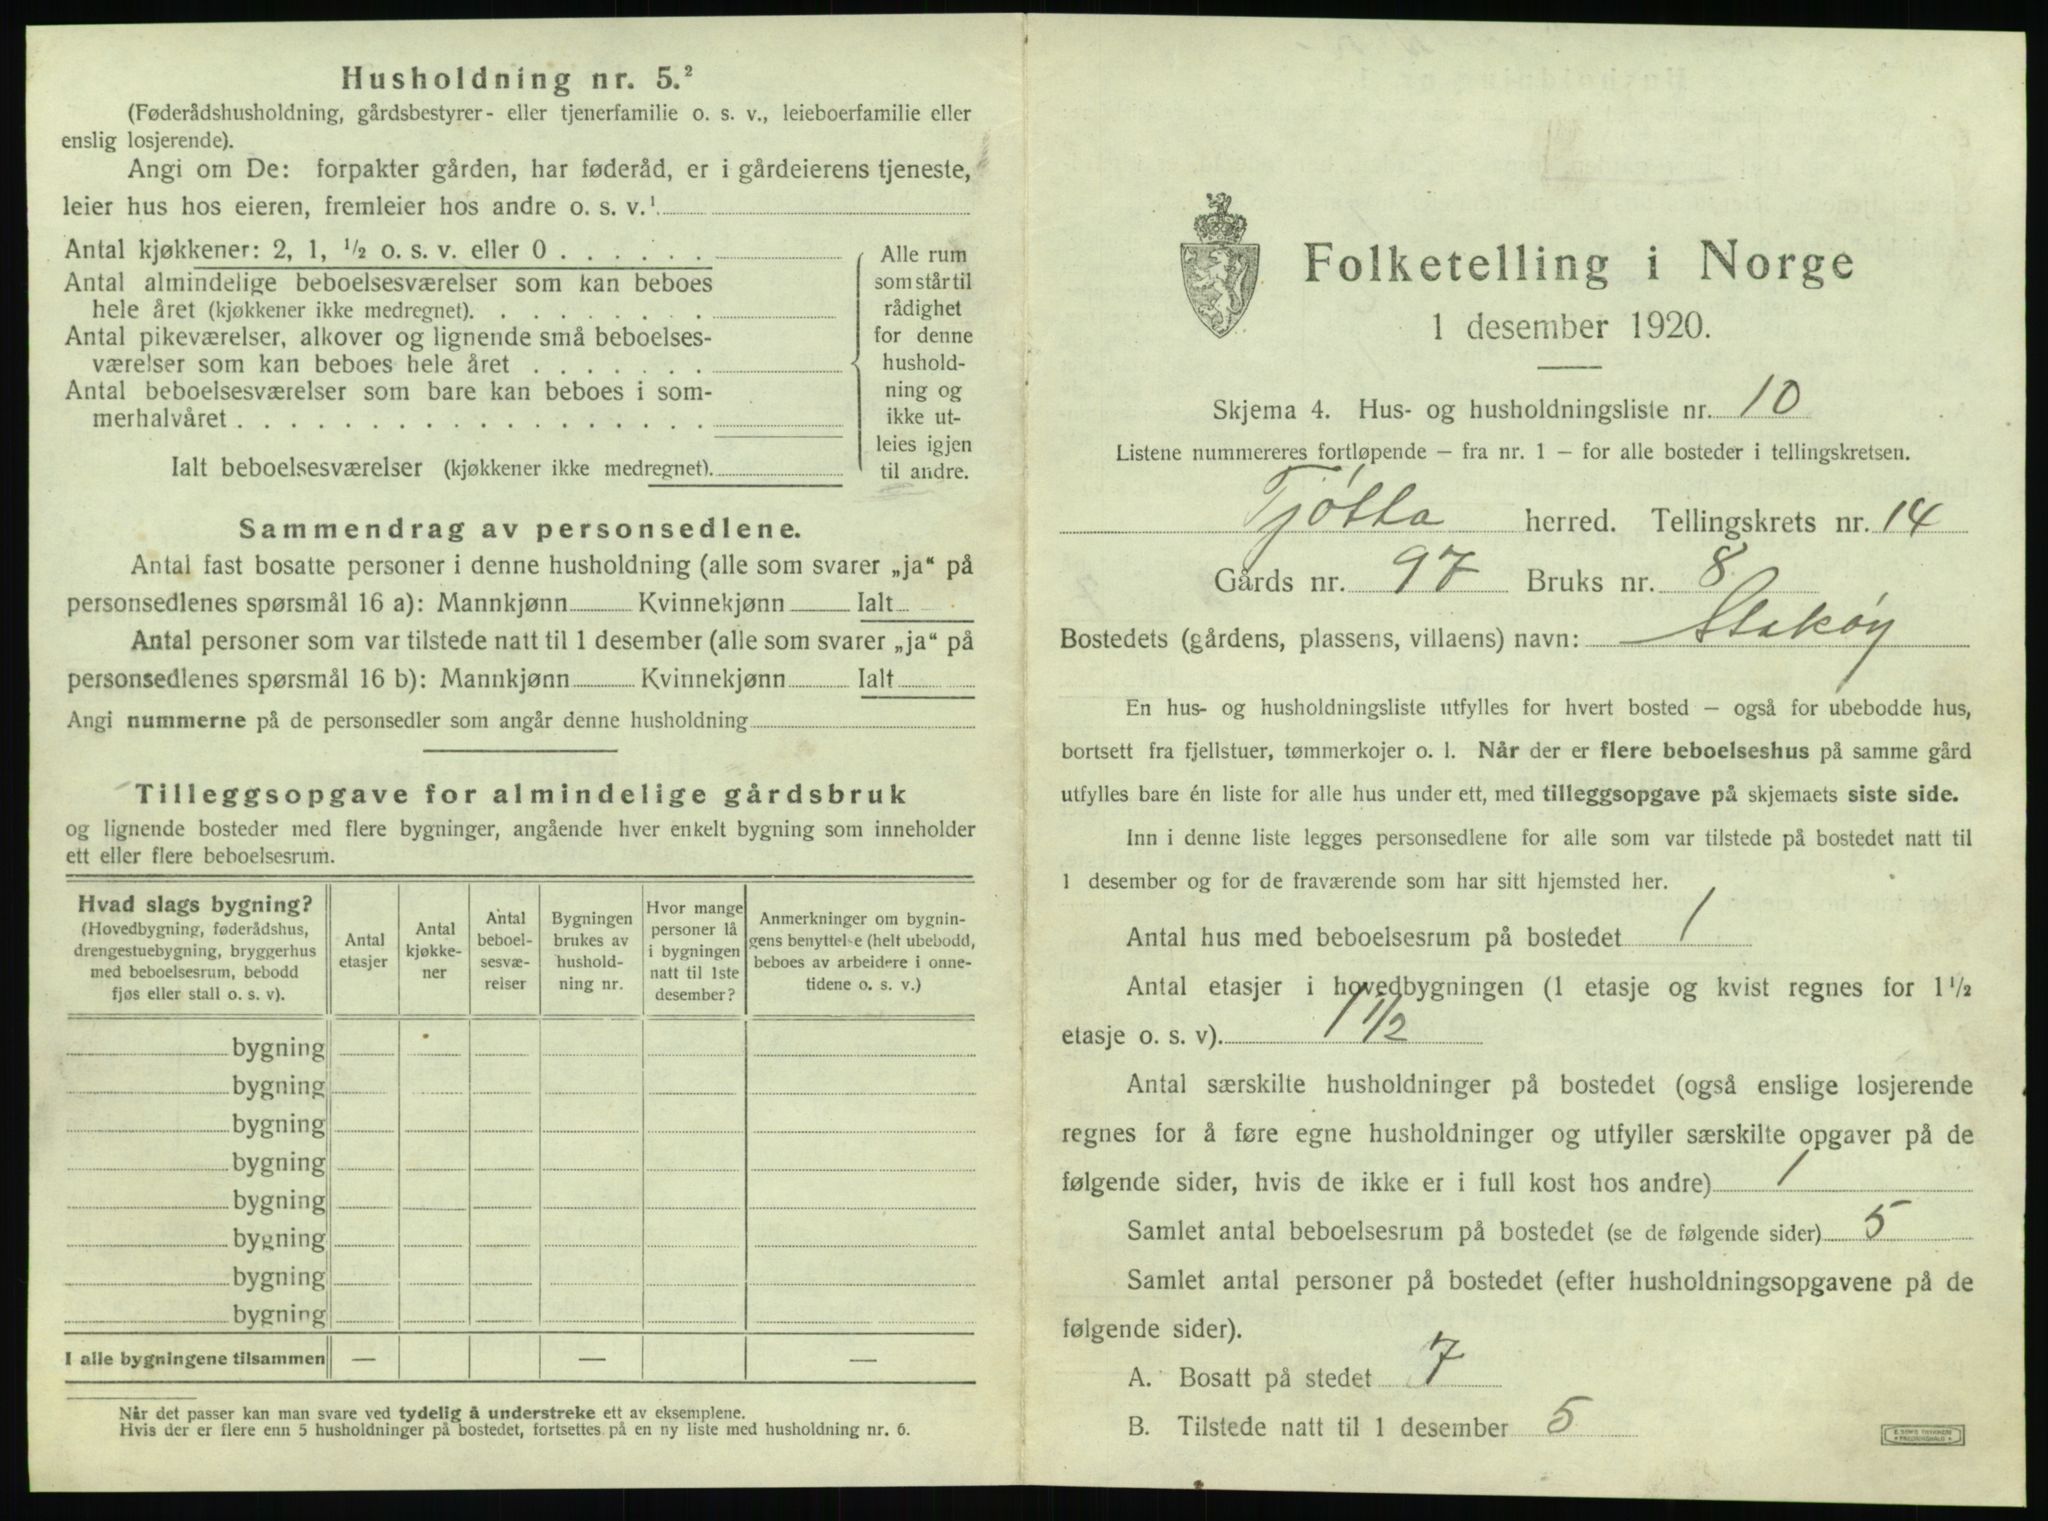 Husholdning nr. 5.²
(Føderådshusholdning, gårdsbestyrer- eller tjenerfamilie o. s. v., leieboerfamilie eller
enslig losjerende).
Angi om De: forpakter gården, har føderåd, er i gårdeierens tjeneste,
leier hus hos eieren, fremleier hos andre o. s. v.¹
Antal kjøkkener: 2, 1, ½ o. s. v. eller 0 . . . . . .
Antal almindelige beboelsesværelser som kan beboes
hele året (kjøkkener ikke medregnet). . . . . . . .
Antal pikeværelser, alkover og lignende små beboelses-
værelser som kan beboes hele året . . . . . . .
Antal beboelsesværelser som bare kan beboes i som-
merhalvåret . . . . . . . . . . . . . . . . . .
Ialt beboelsesværelser (kjøkkener ikke medregnet).
Alle rum
som står til
rådighet
for denne
hushold-
ning og
ikke ut-
leies igjen
til andre.
Sammendrag av personsedlene.
Antal fast bosatte personer i denne husholdning (alle som svarer „ja“ på
personsedlenes spørsmål 16 a): Mannkjønn Kvinnekjønn Ialt
Antal personer som var tilstede natt til 1 desember (alle som svarer „ja“ på
personsedlenes spørsmål 16 b): Mannkjønn Kvinnekjønn Ialt
Angi nummerne på de personsedler som angår denne husholdning
Tilleggsopgave for almindelige gårdsbruk
og lignende bosteder med flere bygninger, angående hver enkelt bygning som inneholder
ett eller flere beboelsesrum.
Hvad slags bygning?
(Hovedbygning, føderådshus,
drengestuebygning, bryggerhus
med beboelsesrum, bebodd
fjøs eller stall o. s. v).
Antal
etasjer
Antal
kjøkke-
ner
Antal
beboel-
sesvæ-
relser
Bygningen
brukes av
hushold-
ning nr.
Hvor mange
personer lå
i bygningen
natt til 1ste
desember?
Anmerkninger om bygnin-
gens benyttelse (helt ubebodd,
beboes av arbeidere i onne-
tidene o. s. v.)
bygning
bygning
bygning
bygning
bygning
bygning
bygning
bygning
I alle bygningene tilsammen — — —
Når det passer kan man svare ved tydelig å understreke ett av eksemplene.
Hvis der er flere enn 5 husholdninger på bostedet, fortsettes på en ny liste med husholdning nr. 6.
Folketelling i Norge
1 desember 1920.
Skjema 4. Hus- og husholdningsliste nr. 10
Listene nummereres fortløpende – fra nr. 1 – for alle bosteder i tellingskretsen.
Tjøtta herred. Tellingskrets nr. 14
Gårds nr. 97 Bruks nr. 8
Bostedets (gårdens, plassens, villaens) navn: Stokøy
En hus- og husholdningsliste utfylles for hvert bosted – også for ubebodde hus,
bortsett fra fjellstuer, tømmerkojer o. l. Når der er flere beboelseshus på samme gård
utfylles bare én liste for alle hus under ett, med tilleggsopgave på skjemaets siste side.
Inn i denne liste legges personsedlene for alle som var tilstede på bostedet natt til
1 desember og for de fraværende som har sitt hjemsted her.
Antal hus med beboelsesrum på bostedet 1
Antal etasjer i hovedbygningen (1 etasje og kvist regnes for 1½
etasje o. s. v). 1 1/2
Antal særskilte husholdninger på bostedet (også enslige losjerende
regnes for å føre egne husholdninger og utfyller særskilte opgaver på de
følgende sider, hvis de ikke er i full kost hos andre) 1
Samlet antal beboelsesrum på bostedet (se de følgende sider) 5
Samlet antal personer på bostedet (efter husholdningsopgavene på de
følgende sider).
A. Bosatt på stedet 7
B. Tilstede natt til 1 desember 5